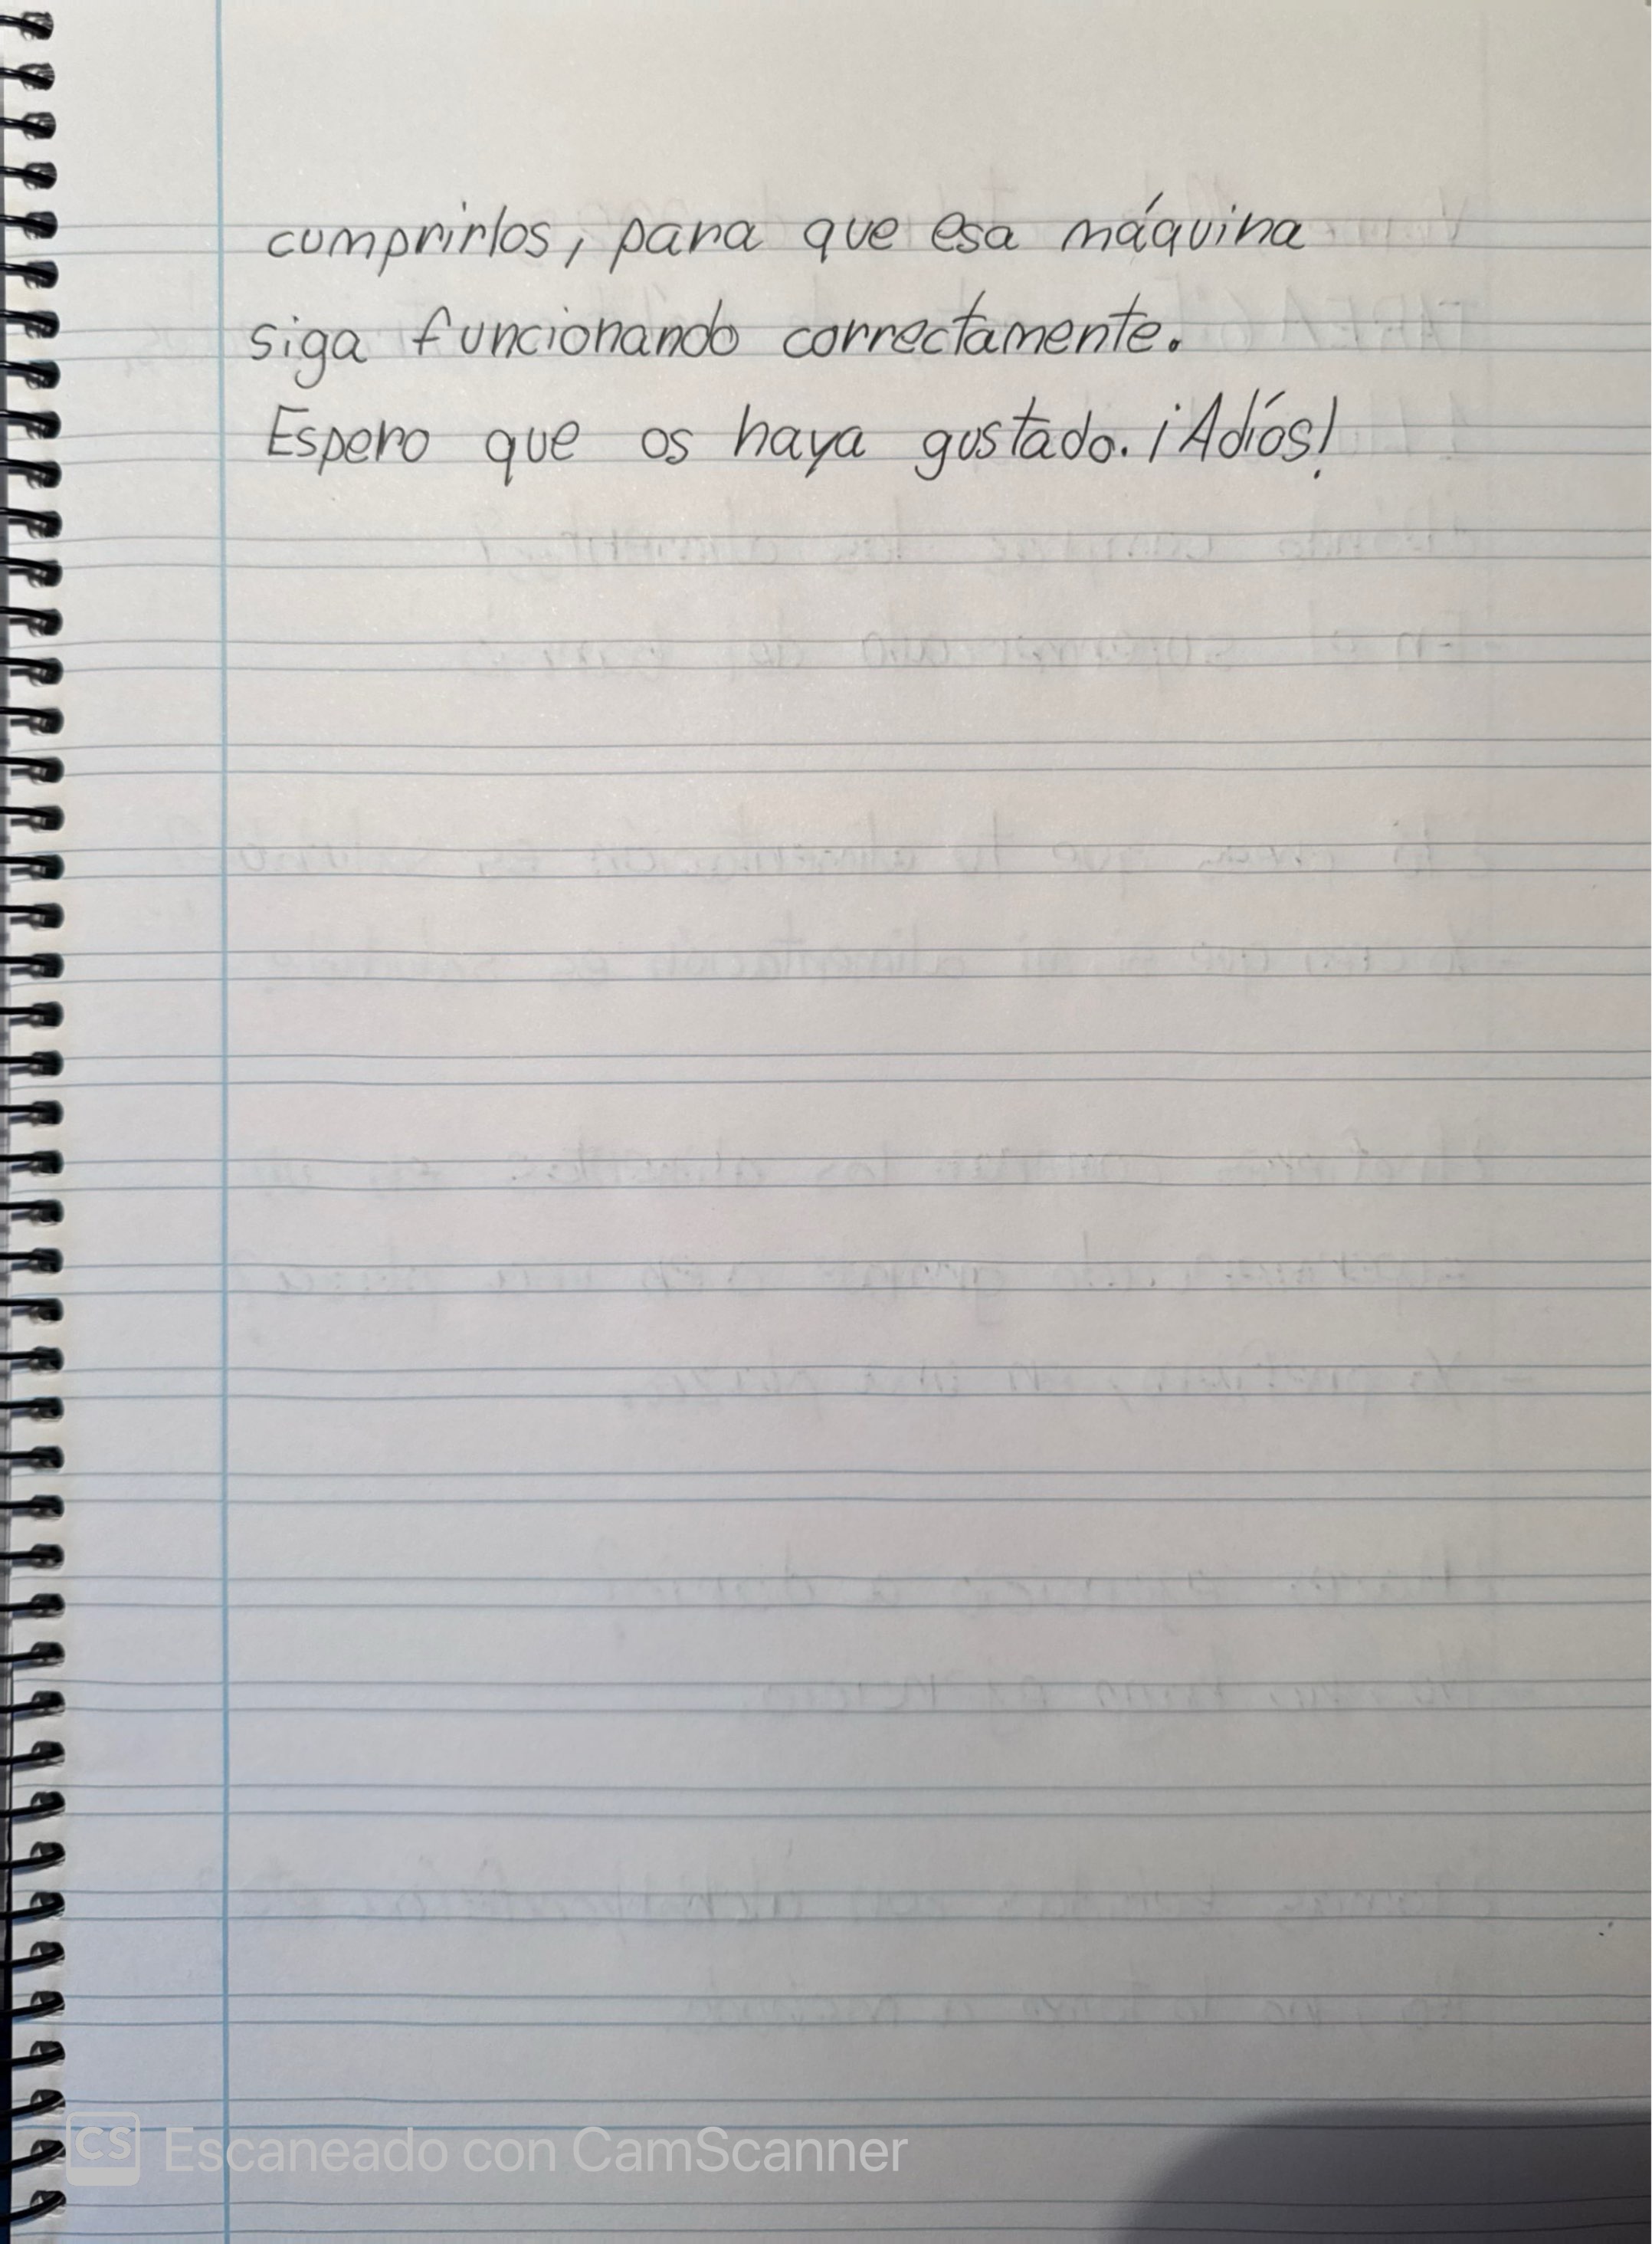 cumprirlos, para que esa máquina
siga funcionando correctamente.
Espero que os haya gustado. ¡Adíos!
CS Escaneado con CamScanner